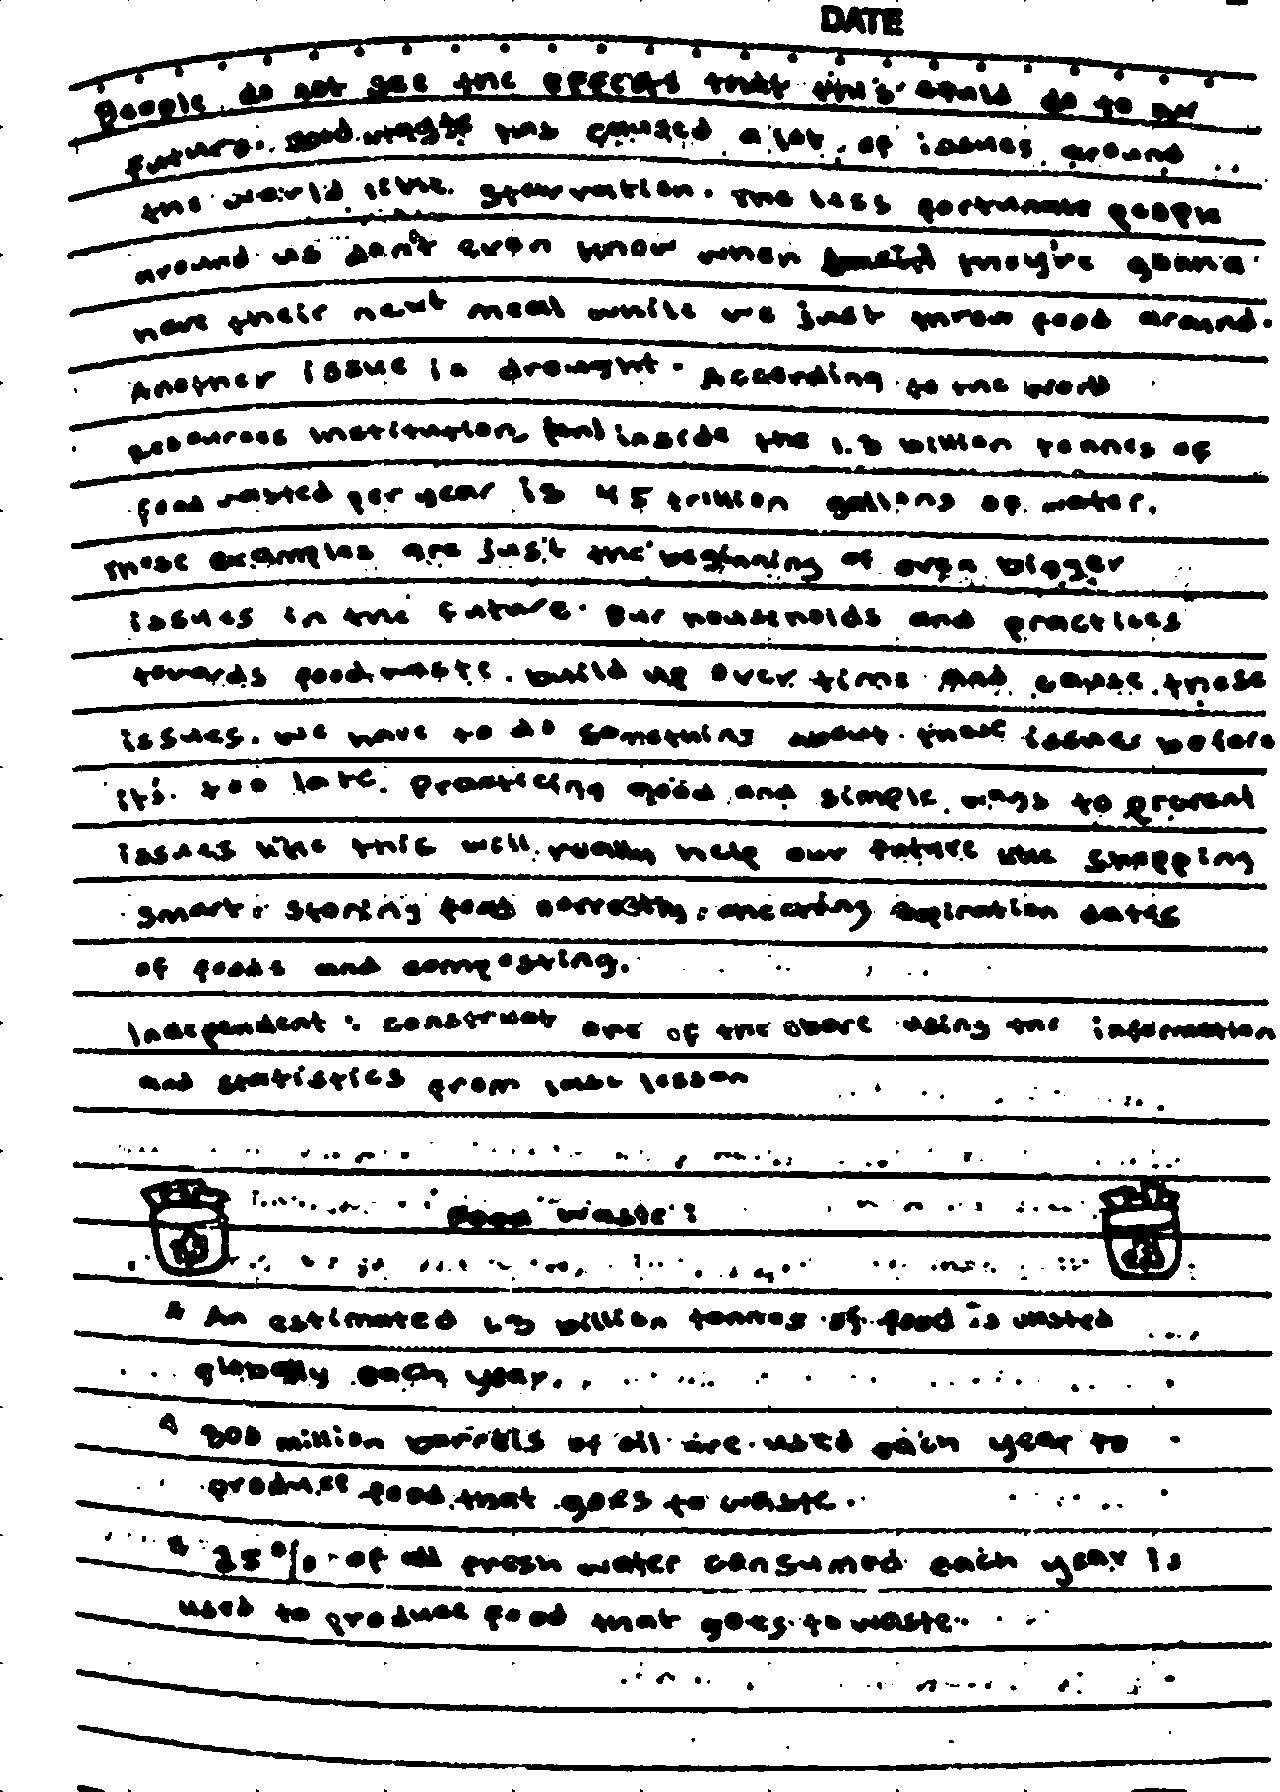 DATE
People do not see the effects that this could do to our
future. Food waste has caused a lot of issues around
the world like. Starvation. The less fortunate people
around us don't even know when they're gonna
have their next meal while we just throw food around.
Another issue is drought. According to the world
resources institution, inside the 1.3 billion tonnes of
food wasted per year is 45 trillion gallons of water.
These examples are just the beginning of even bigger
issues in the future. Our households and practices
towards food waste. build up over time and cause these
issues. We have to do something about these issues before
it's. too late. Practicing good and simple ways to prevent
issues like this will really help our future like shopping
smart, storing food correctly, checking expiration dates
of foods and composting.
Independent : construct one of the above using the information
and statistics from last lesson
Food Waste :
An estimated 1.3 billion tonnes of food is wasted
globally each year.
300 million barrels of oil are used each year to
produce food that goes to waste.
25% of all fresh water consumed each year is
used to produce food that goes to waste.